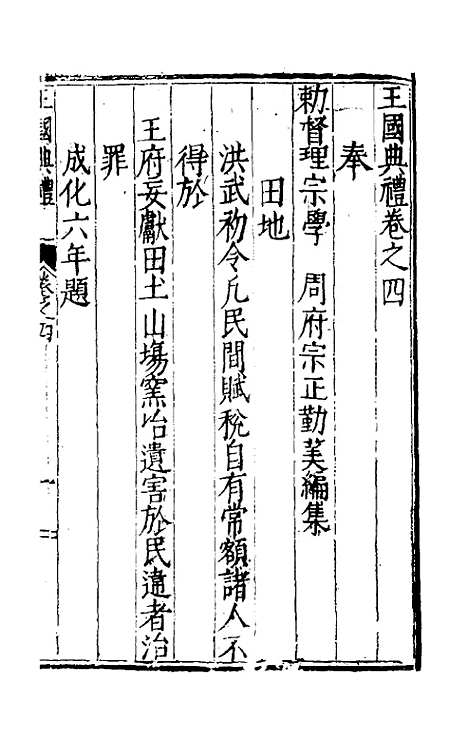 王國典禮卷之四
奉
勅督理宗學　周府宗正勤美編集
田地
洪武初令凡民間賦稅自有常額諸人不
得於
王府妄獻田土山塲窯冶遺害於民違者治
罪
成化六年題
王國典禮　卷之四　一